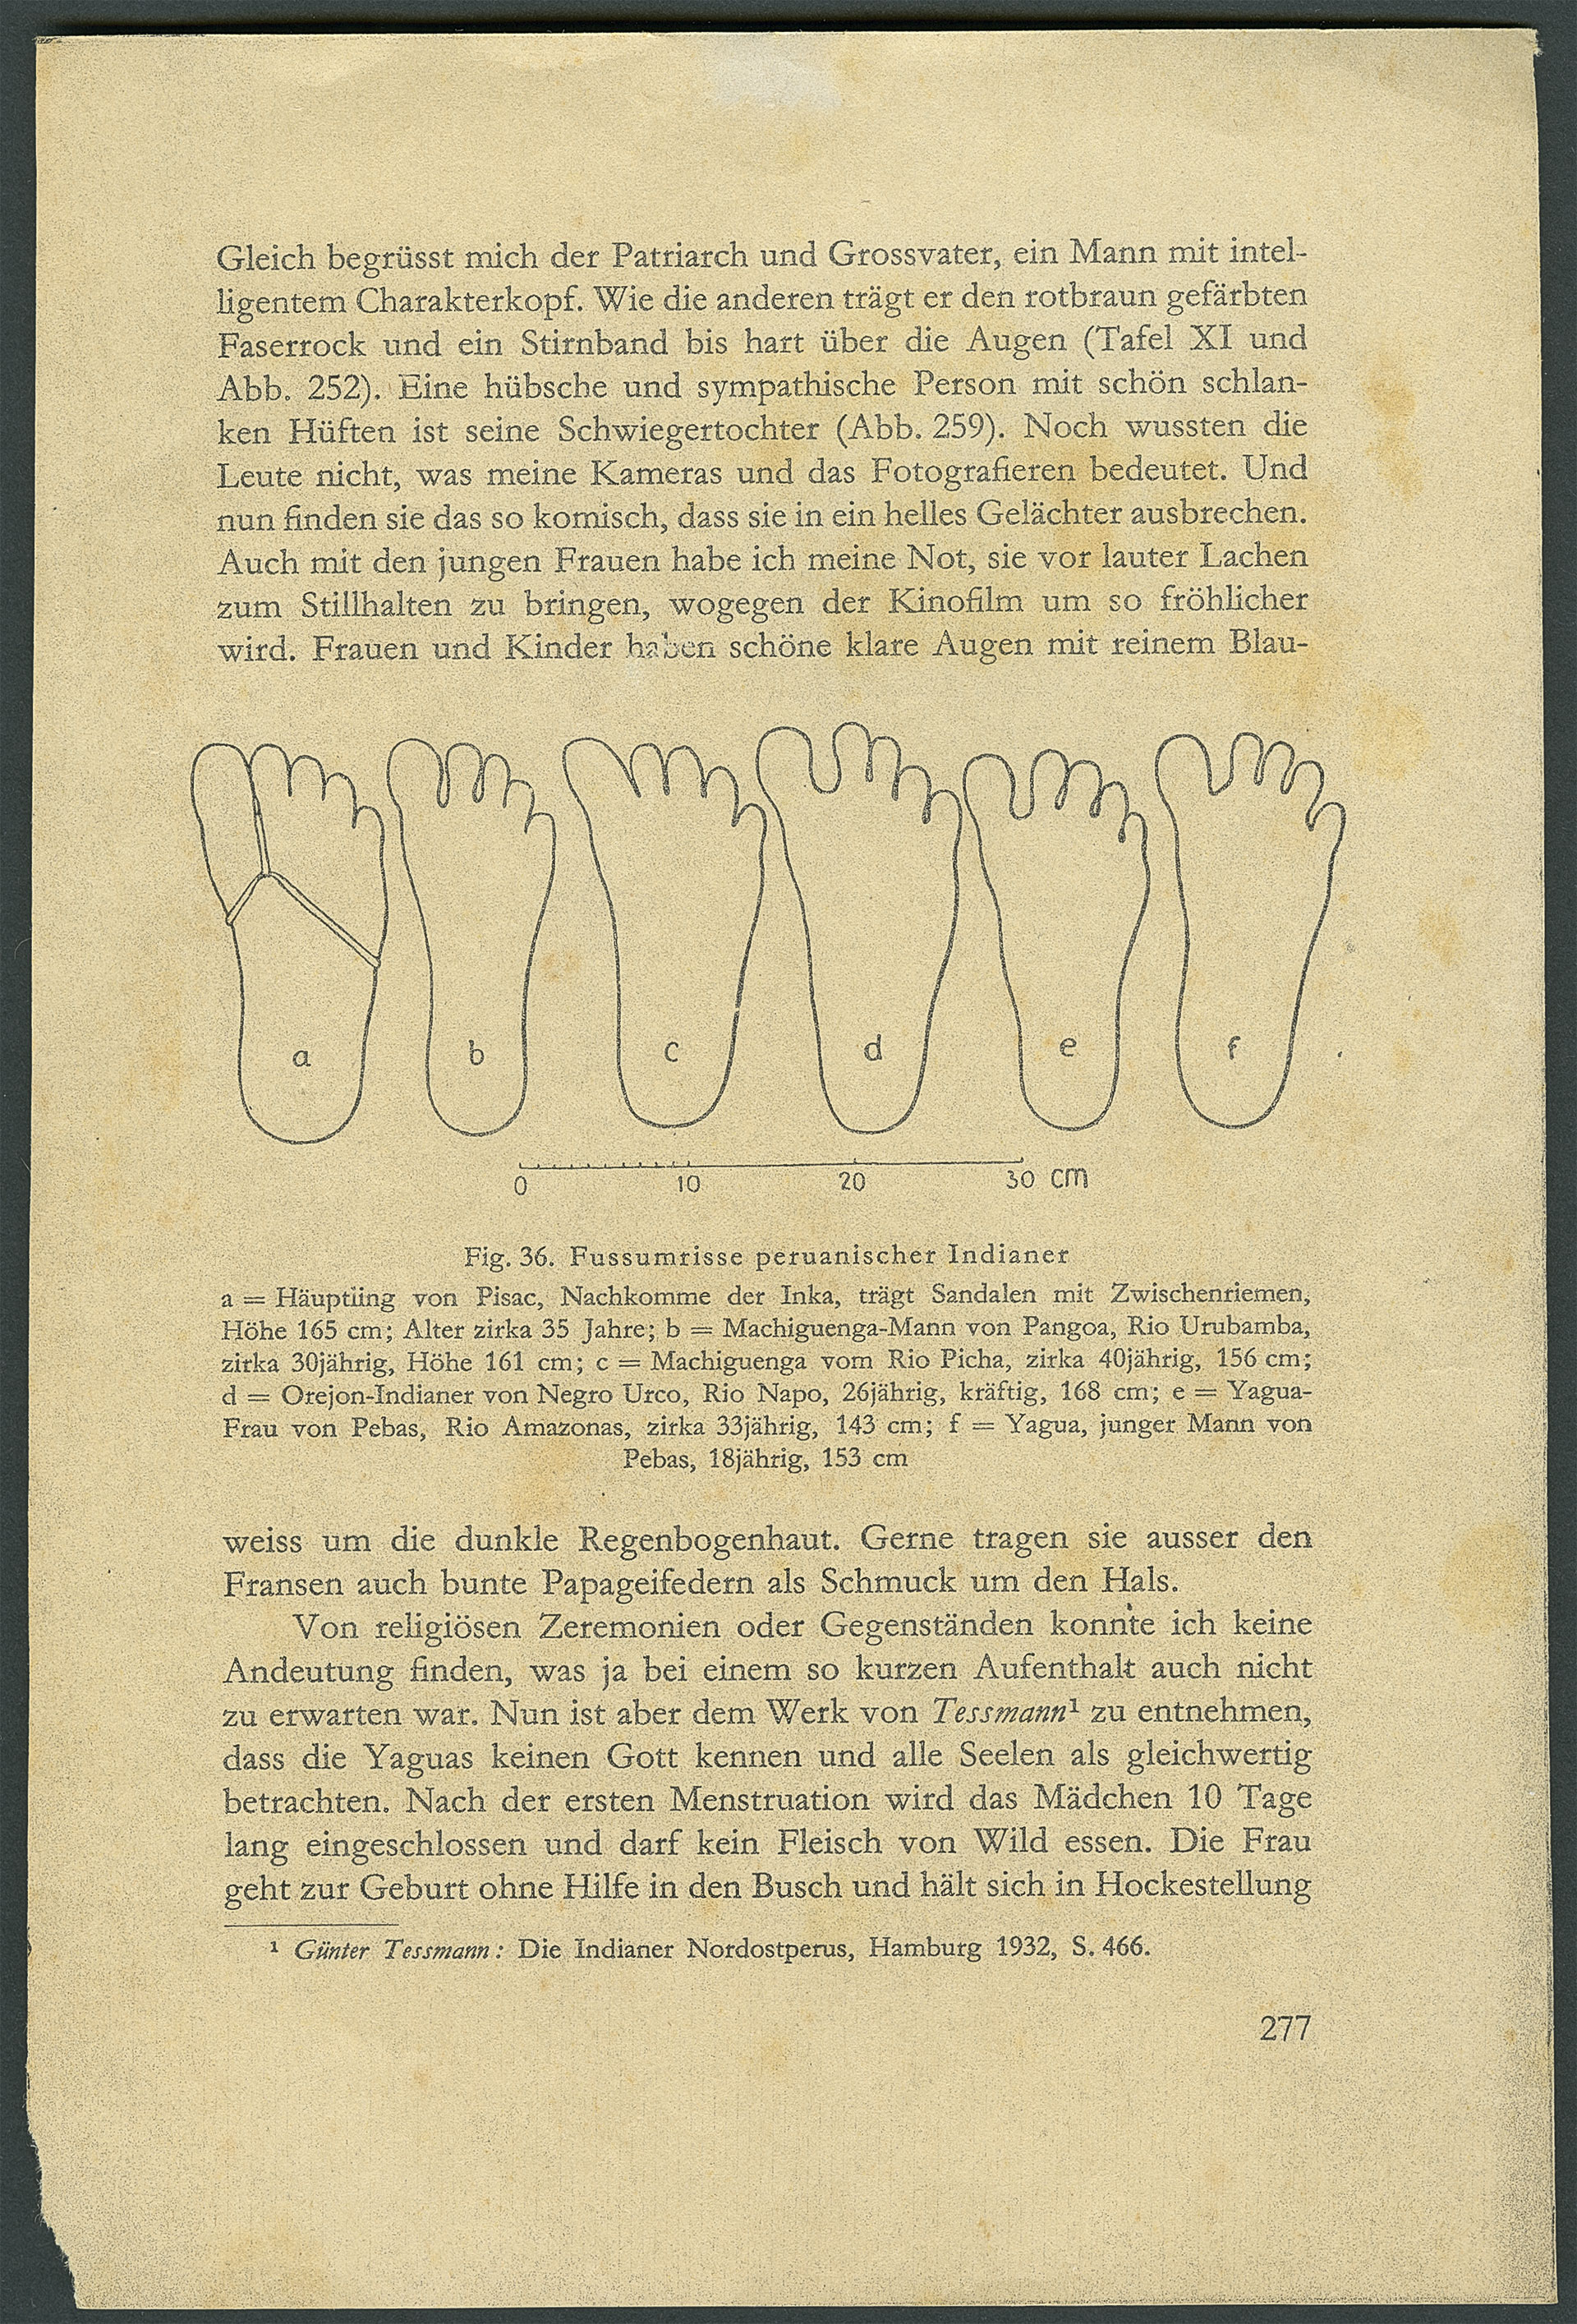 Gleich begrüsst mich der Patriarch und Grossvater, ein Mann mit intel-
ligentem Charakterkopf. Wie die anderen trägt er den rotbraun gefärbten
Faserrock und ein Stirnband bis hart über die Augen (Tafel XI und
Abb. 252). Eine hübsche und sympathische Person mit schön schlan-
ken Hüften ist seine Schwiegertochter (Abb. 259). Noch wussten die
Leute nicht, was meine Kameras und das Fotografieren bedeutet. Und
nun finden sie das so komisch, dass sie in ein helles Gelächter ausbrechen.
Auch mit den jungen Frauen habe ich meine Not, sie vor lauter Lachen
zum Stillhalten zu bringen, wogegen der Kinofilm um so fröhlicher
wird. Frauen und Kinder haben schöne klare Augen mit reinem Blau-
a b c d e f
0 10 20 30 cm
Fig. 36. Fussumrisse peruanischer Indianer
a = Häuptling von Pisac, Nachkomme der Inka, trägt Sandalen mit Zwischenriemen,
Höhe 165 cm; Alter zirka 35 Jahre; b = Machiguenga-Mann von Pangoa, Rio Urubamba,
zirka 30jährig, Höhe 161 cm; c = Machiguenga vom Rio Picha, zirka 40jährig, 156 cm;
d = Orejon-Indianer von Negro Urco, Rio Napo, 26jährig, kräftig, 168 cm; e = Yagua-
Frau von Pebas, Rio Amazonas, zirka 33jährig, 143 cm; f = Yagua, junger Mann von
Pebas, 18jährig, 153 cm
weiss um die dunkle Regenbogenhaut. Gerne tragen sie ausser den
Fransen auch bunte Papageifedern als Schmuck um den Hals.
Von religiösen Zeremonien oder Gegenständen konnte ich keine
Andeutung finden, was ja bei einem so kurzen Aufenthalt auch nicht
zu erwarten war. Nun ist aber dem Werk von Tessmann¹ zu entnehmen,
dass die Yaguas keinen Gott kennen und alle Seelen als gleichwertig
betrachten. Nach der ersten Menstruation wird das Mädchen 10 Tage
lang eingeschlossen und darf kein Fleisch von Wild essen. Die Frau
geht zur Geburt ohne Hilfe in den Busch und hält sich in Hockestellung
¹ Günter Tessmann: Die Indianer Nordostperus, Hamburg 1932, S. 466.
277